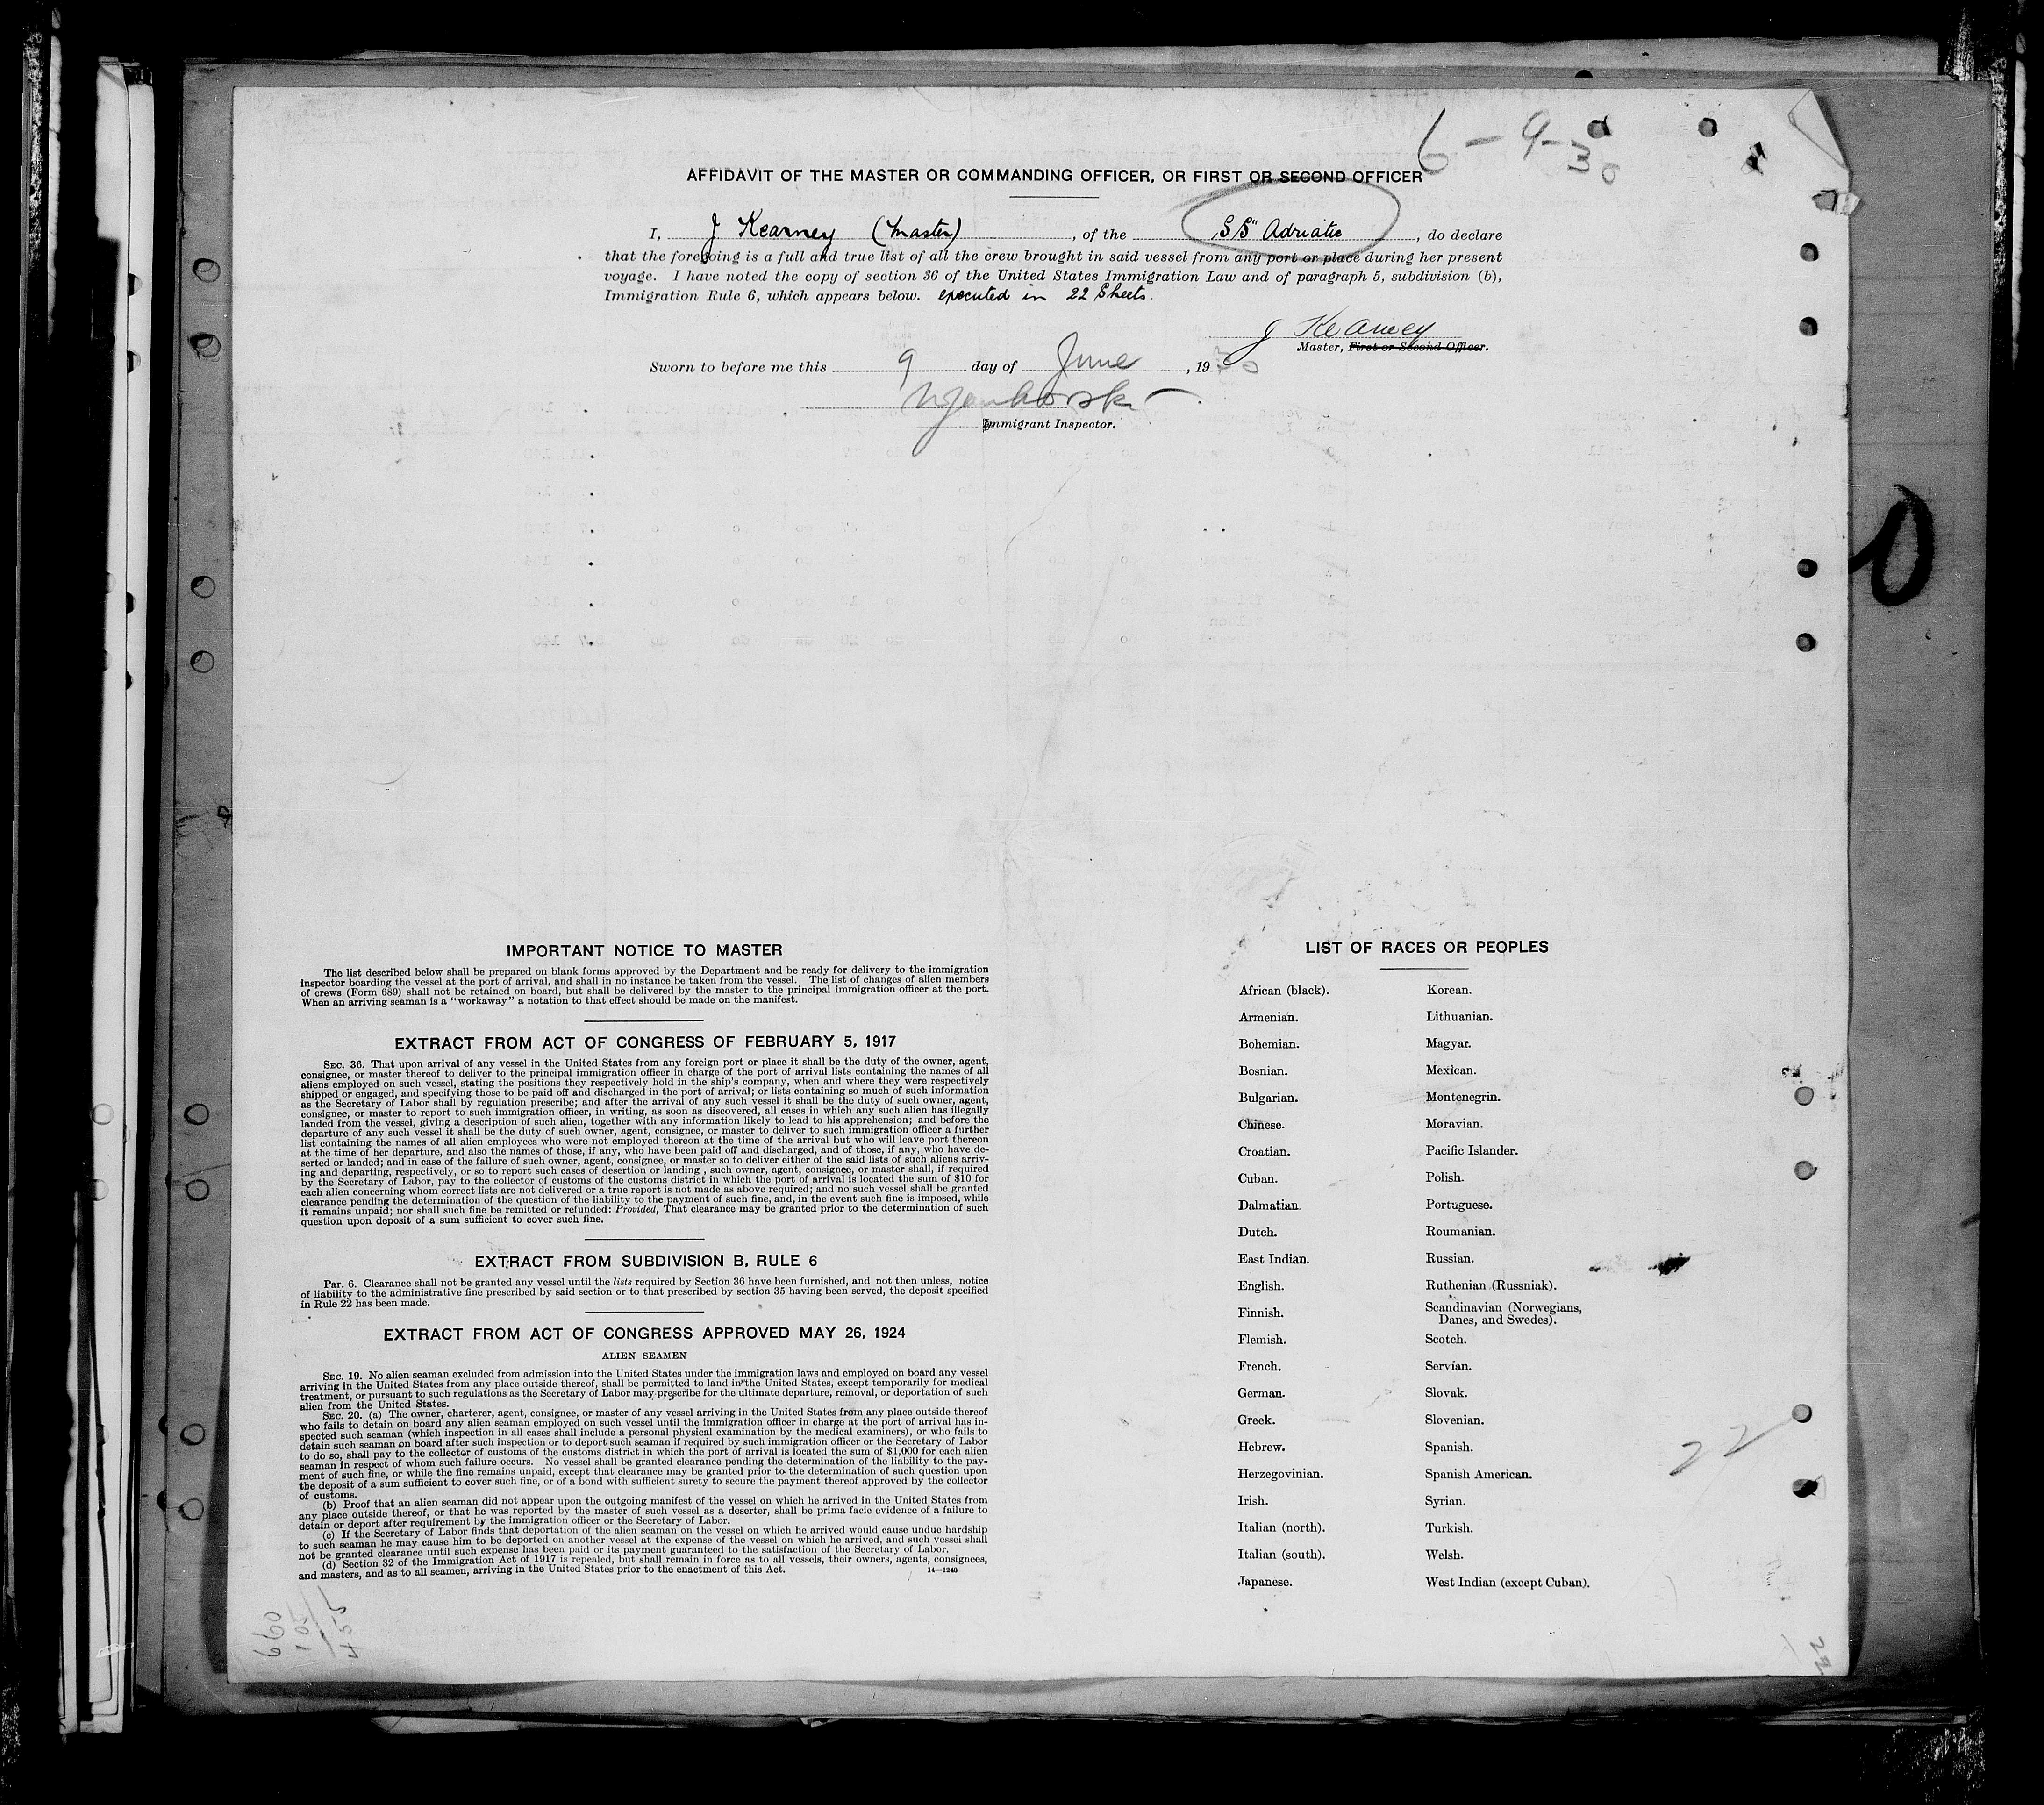 6-9-30
AFFIDAVIT OF THE MASTER OR COMMANDING OFFICER, OR FIRST OR SECOND OFFICER
I, J Kearney (Master), of the SS "Adriatic, do declare
that the foregoing is a full and true list of all the crew brought in said vessel from any port or place during her present
voyage. I have noted the copy of section 36 of the United States Immigration Law and of paragraph 5, subdivision (b),
Immigration Rule 6, which appears below. executed in 22 Sheets.
J Kearney
Master, First or Second Officer.
Sworn to before me this 9 day of June, 1930
Immigrant Inspector.
0
IMPORTANT NOTICE TO MASTER
The list described below shall be prepared on blank forms approved by the Department and be ready for delivery to the immigration
inspector boarding the vessel at the port of arrival, and shall in no instance be taken from the vessel. The list of changes of alien members
of crews (Form 689) shall not be retained on board, but shall be delivered by the master to the principal immigration officer at the port.
When an arriving seaman is a "workaway" a notation to that effect should be made on the manifest.
EXTRACT FROM ACT OF CONGRESS OF FEBRUARY 5, 1917
SEC. 36. That upon arrival of any vessel in the United States from any foreign port or place it shall be the duty of the owner, agent,
consignee, or master thereof to deliver to the principal immigration officer in charge of the port of arrival lists containing the names of all
aliens employed on such vessel, stating the positions they respectively hold in the ship's company, when and where they were respectively
shipped or engaged, and specifying those to be paid off and discharged in the port of arrival; or lists containing so much of such information
as the Secretary of Labor shall by regulation prescribe; and after the arrival of any such vessel it shall be the duty of such owner, agent,
consignee, or master to report to such immigration officer, in writing, as soon as discovered, all cases in which any such alien has illegally
landed from the vessel, giving a description of such alien, together with any information likely to lead to his apprehension; and before the
departure of any such vessel it shall be the duty of such owner, agent, consignee, or master to deliver to such immigration officer a further
list containing the names of all alien employees who were not employed thereon at the time of the arrival but who will leave port thereon
at the time of her departure, and also the names of those, if any, who have been paid off and discharged, and of those, if any, who have de-
serted or landed; and in case of the failure of such owner, agent, consignee, or master so to deliver either of the said lists of such aliens arriv-
ing and departing, respectively, or so to report such cases of desertion or landing, such owner, agent, consignee, or master shall, if required
by the Secretary of Labor, pay to the collector of customs of the customs district in which the port of arrival is located the sum of $10 for
each alien concerning whom correct lists are not delivered or a true report is not made as above required; and no such vessel shall be granted
clearance pending the determination of the question of the liability to the payment of such fine, and, in the event such fine is imposed, while
it remains unpaid; nor shall such fine be remitted or refunded: Provided, That clearance may be granted prior to the determination of such
question upon deposit of a sum sufficient to cover such fine.
EXTRACT FROM SUBDIVISION B, RULE 6
Par. 6. Clearance shall not be granted any vessel until the lists required by Section 36 have been furnished, and not then unless, notice
of liability to the administrative fine prescribed by said section or to that prescribed by section 35 having been served, the deposit specified
in Rule 22 has been made.
EXTRACT FROM ACT OF CONGRESS APPROVED MAY 26, 1924
ALIEN SEAMEN
SEC. 19. No alien seaman excluded from admission into the United States under the immigration laws and employed on board any vessel
arriving in the United States from any place outside thereof, shall be permitted to land in the United States, except temporarily for medical
treatment, or pursuant to such regulations as the Secretary of Labor may prescribe for the ultimate departure, removal, or deportation of such
alien from the United States.
SEC. 20. (a) The owner, charterer, agent, consignee, or master of any vessel arriving in the United States from any place outside thereof
who fails to detain on board any alien seaman employed on such vessel until the immigration officer in charge at the port of arrival has in-
spected such seaman (which inspection in all cases shall include a personal physical examination by the medical examiners), or who fails to
detain such seaman on board after such inspection or to deport such seaman if required by such immigration officer or the Secretary of Labor
to do so, shall pay to the collector of customs of the customs district in which the port of arrival is located the sum of $1,000 for each alien
seaman in respect of whom such failure occurs. No vessel shall be granted clearance pending the determination of the liability to the pay-
ment of such fine, or while the fine remains unpaid, except that clearance may be granted prior to the determination of such question upon
the deposit of a sum sufficient to cover such fine, or of a bond with sufficient surety to secure the payment thereof approved by the collector
of customs.
(b) Proof that an alien seaman did not appear upon the outgoing manifest of the vessel on which he arrived in the United States from
any place outside thereof, or that he was reported by the master of such vessel as a deserter, shall be prima facie evidence of a failure to
detain or deport after requirement by the immigration officer or the Secretary of Labor.
(c) If the Secretary of Labor finds that deportation of the alien seaman on the vessel on which he arrived would cause undue hardship
to such seaman he may cause him to be deported on another vessel at the expense of the vessel on which he arrived, and such vessel shall
not be granted clearance until such expense has been paid or its payment guaranteed to the satisfaction of the Secretary of Labor.
(d) Section 32 of the Immigration Act of 1917 is repealed, but shall remain in force as to all vessels, their owners, agents, consignees,
and masters, and as to all seamen, arriving in the United States prior to the enactment of this Act.
14—1240
660
105
455
LIST OF RACES OR PEOPLES
African (black). Korean.
Armenian. Lithuanian.
Bohemian. Magyar.
Bosnian. Mexican.
Bulgarian. Montenegrin.
Chinese. Moravian.
Croatian. Pacific Islander.
Cuban. Polish.
Dalmatian. Portuguese.
Dutch. Roumanian.
East Indian. Russian.
English. Ruthenian (Russniak).
Finnish. Scandinavian (Norwegians,
Danes, and Swedes).
Flemish. Scotch.
French. Servian.
German. Slovak.
Greek. Slovenian.
Hebrew. Spanish.
Herzegovinian. Spanish American.
Irish. Syrian.
Italian (north). Turkish.
Italian (south). Welsh.
Japanese. West Indian (except Cuban).
22